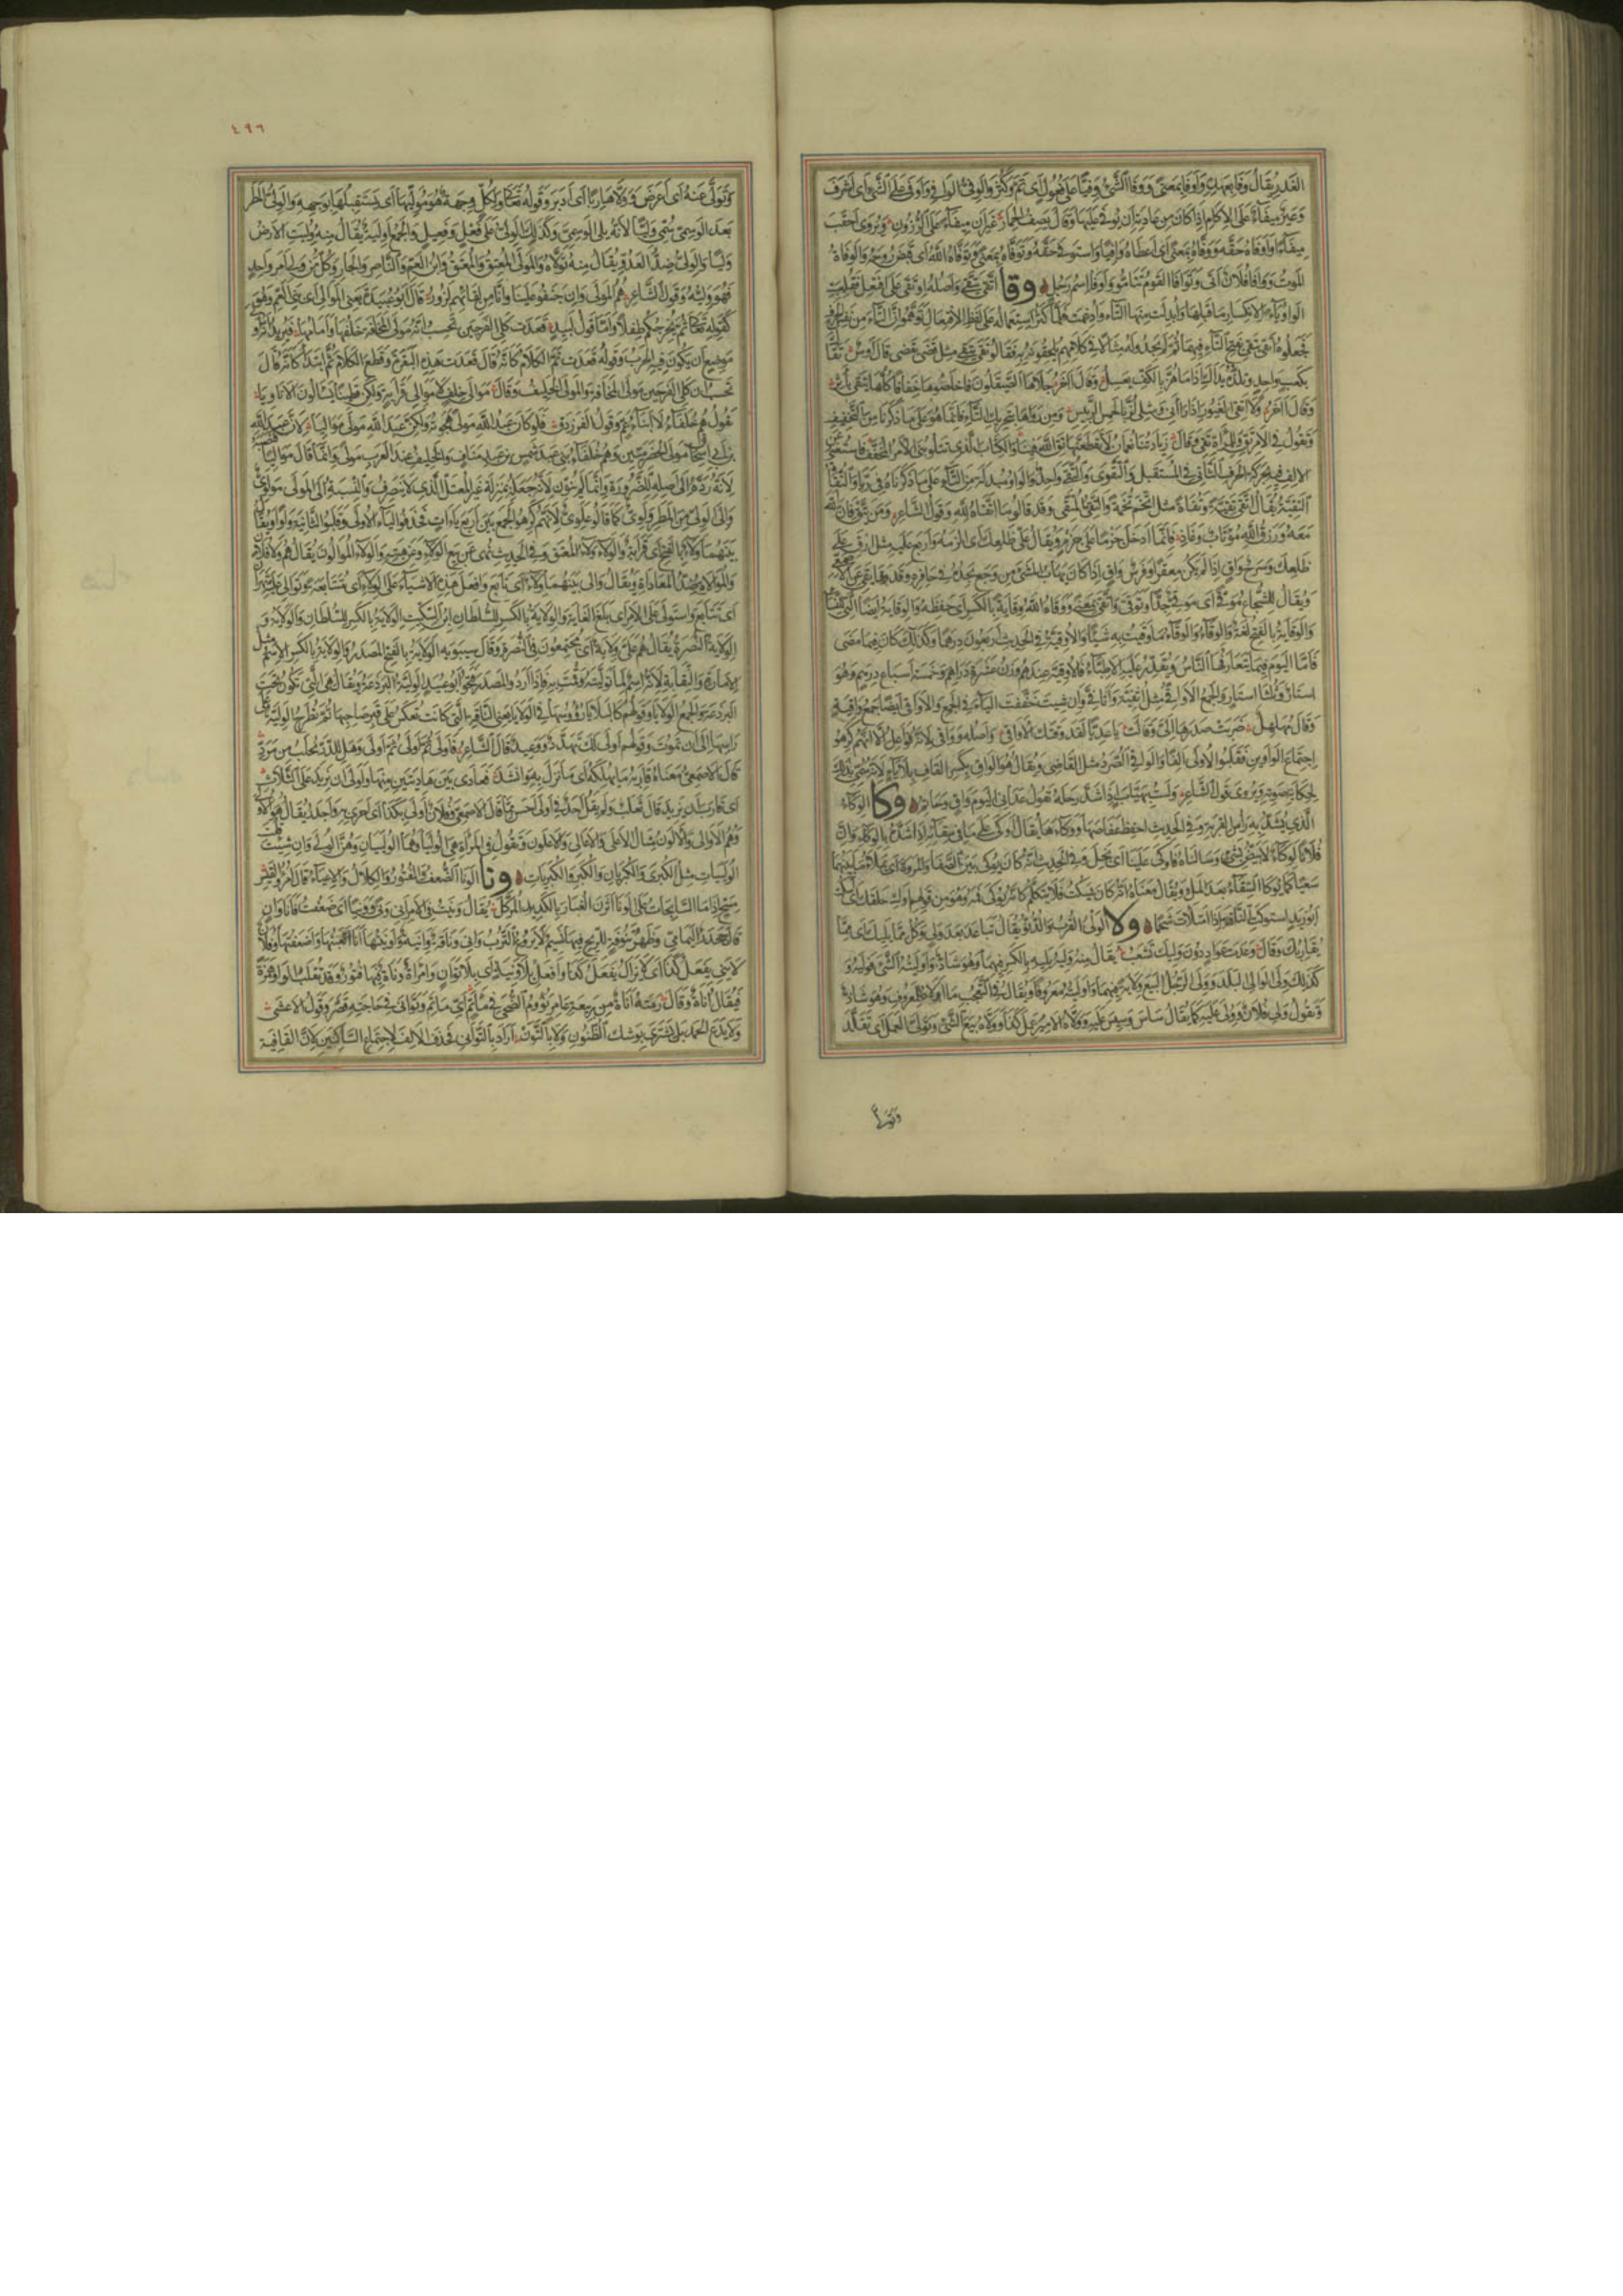 الغدر يقال وفى بعهده وأوفى بمعنى ووفى الشئ وفيا على فعول أى تم وكثر والوفى الوافى وأوفى على الشئ أى أشرف
وعير ميفاء على الإكام إذا كان من عادته أن يوفى عليها وقال يصف الحمار عيران ميفاء على الرزون ويروى أحقب
ميفاء وأوفاه حقه ووفاه بمعنى أى أعطاه وافيا واستوفى حقه وتوفاه بمعنى وتوفاه الله أى قبض روحه والوفاة
الموت ووافا فلان أتى وتوافا القوم تتاموا وأوفا اسم رجل وقا اتقى يتقى وأصله اوتقى على افتعل فقلبت
الواو ياء لانكسار ما قبلها وأبدلت منها التاء وأدغمت فلما كثر استعماله على لفظ الافتعال توهموا أن التاء من نفس الحرف
فجعلوه اتقى يتقى بفتح التاء فيهما ثم لم يجدوا له مثالا فى كلامهم يلحقونه به فقالوا تقى يتقى مثل قضى يقضى قال أوس تقاك
بكعب واحد وتلذه يداك إذا ما هز بالكف يعسل وقال آخر جلاها الصيقلون فاخلصوها خفافا كلها يتقى بأثر
وقال آخر ولا أتقى الغيور إذا رآنى ومثلى لز بالحمس الربيس ومن رواها بتحريك التاء فإنما هو على ما ذكرنا من التخفيف
وتقول فى الأمر تق وللمرأة تقى وقال زيادتنا نعمان لا تقطعنها تق الله فينا والكتاب الذى تتلو بنى الأمر على المخفف فاستغنى عن
الألف فيه بحركة الحرف الثانى فى المستقبل والتقوى والتقى واحد والواو مبدلة من الياء على ما ذكرناه فى ريا والتقاة
التقية يقال اتقى تقية وتقاة مثل اتخم تخمة والتقى المتقى وقد قالوا ما أتقاه لله وقول الشاعر ومن يتق فإن الله
معه ورزق الله مؤتاب وغاد فإنما أدخل جزما على جزم ويقال على ظلعك أى الزمه واربع عليه مثل ارق على
ظلعك وسرج واق إذا لم يكن معقرا وفرس واق إذا كان يهاب المشى من وجع يجده فى حافره وقد وقى يقى عن الأصمعى
ويقال للشجاع موقى أى موقى جدا وتوقى واتقى بمعنى ووقاه الله وقاية بالكسر أى حفظه والوقاية أيضا التى للنساء
والوقاية بالفتح لغة والوقاء والوقاء ما وقيت به شيئا والأوقية فى الحديث أربعون درهما وكذلك كان فيما مضى
فأما اليوم فيما يتعارفها الناس ويقدر عليه الأطباء فالأوقية عندهم وزن عشرة دراهم وخمسة أسباع درهم وهو
إستار وثلثا إستار والجمع الأواقى مثل أثفية وأثافى وإن شئت خففت الياء فى الجمع والأواقى أيضا جمع واقية
وقال مهلهل ضربت صدرها إلى وقالت يا عديا لقد وقتك الأواقى وأصله وواقى لأنه فواعل إلا أنهم كرهوا
اجتماع الواوين فقلبوا الأولى ألفا والواقى الصرد مثل القاضى ويقال هو الواق بكسر القاف بلا ياء لأنه سمى بذلك
لحكاية صوته ويروى قول الشاعر ولست بهياب إذا شد رحله يقول عدانى اليوم واق وحاتم وكا الوكاء
الذى يشد به رأس القربة وفى الحديث احفظ عفاصها ووكاءها يقال أوكى على ما فى سقائه إذا شده بالوكاء وإن
فلانا لوكاء لا يبض بشئ وسألناه فأوكى علينا أى بخل وفى الحديث أنه كان يوكى بين الصفا والمروة أى يملأ ما بينهما
سعيا كما يوكى السقاء بعد الملء ويقال معناه أنه كان يسكت فلا يتكلم كأنه يوكى فمه وهو من قولهم أوك حلقك أى اسكت
أبو زيد استوكت الناقة إذا امتلأت شحما ولا الولى القرب والدنو يقال تباعد بعد ولى وكل مما يليك أى مما
يقاربك وقال وعدت عواد دون وليك تشعب يقال منه وليه يليه بالكسر فيهما وهو شاذ وأوليته الشئ فوليه و
كذلك ولى الوالى البلد وولى الرجل البيع ولاية فيهما وأوليته معروفا ويقال فى التعجب ما أولاه للمعروف وهو شاذ
وتقول ولى فلان وولى عليه كما يقال ساس وسيس عليه وولاه الأمير عمل كذا وولاه بيع الشئ وتولى العمل أى تقلد
وتولى
٤٩٦
وتولى عنه أى أعرض وولى هاربا أى أدبر وقوله تعالى ولكل وجهة هو موليها أى مستقبلها بوجهه والولى المطر
بعد الوسمى سمى وليا لأنه يلى الوسمى وكذلك الولى على فعل وفعيل والجمع أولية يقال منه وليت الأرض
وليا والولى ضد العدو يقال منه تولاه والمولى المعتق والمعتق وابن العم والناصر والجار وكل من ولى أمر واحد
فهو وليه وقول الشاعر هم المولى وإن جنفوا علينا وإنا من لقائهم لزور قال أبو عبيدة يعنى الموالى أى بنى العم وهو
كقوله تعالى ثم يخرجكم طفلا وأما قول لبيد فعدت كلا الفرجين تحسب أنه مولى المخافة خلفها وأمامها فيريد أنه أولى
موضع أن يكون فيه الحرب وقوله فعدت تم الكلام كأنه قال فعدت هذه البقرة وقطع الكلام ثم ابتدأ كأنه قال
تحسب أن كلا الفرجين مولى المخافة والمولى الحليف وقال موالى حلف لا موالى قرابة ولكن قطينا يسألون الأتاويا
يقول هم حلفاء لا أبناء عم وقول الفرزدق فلو كان عبد الله مولى هجوته ولكن عبد الله مولى مواليا لأن عبد الله
بن أبى إسحاق مولى الحضرميين وهم حلفاء بنى عبد شمس بن عبد مناف والحليف عند العرب مولى وإنما قال مواليا
لأنه رده إلى أصله للضرورة وإنما لم ينون لأنه جعله بمنزلة غير المعتل الذى لا ينصرف والنسبة إلى المولى مولوى
وإلى الولى من المطر ولوى كما قالوا علوى لأنهم كرهوا الجمع بين أربع ياءات فحذفوا الياء الأولى وقلبوا الثانية واوا ويقال
بينهما ولاء بالفتح أى قرابة والولاء ولاء المعتق وفى الحديث نهى عن بيع الولاء وعن هبته والولاء الموالون يقال هم ولاء فلان
والموالاة ضد المعاداة ويقال والى بينهما ولاء أى تابع وافعل هذه الأشياء على الولاء أى متتابعة وتوالى عليه شهران
أى تتابع واستولى على الأمد أى بلغ الغاية والولاية بالكسر السلطان ابن السكيت الولاية بالكسر السلطان والولاية و
الولاية النصرة يقال هم على ولاية أى مجتمعون فى النصرة وقال سيبويه الولاية بالفتح المصدر والولاية بالكسر الاسم مثل
الإمارة والنقابة لأنه اسم لما توليته وقمت به فإذا أرادوا المصدر فتحوا أبو عبيد الولية البرذعة ويقال هى التى تكون تحت
البرذعة والجمع الولايا وقولهم كالبلايا رؤوسها فى الولايا يعنى الناقة التى كانت تعكس على قبر صاحبها ثم تطرح الولية على
رأسها إلى أن تموت وقولهم أولى لك تهدد ووعيد قال الشاعر فأولى ثم أولى ثم أولى وهل للدر يحلب من مرد
قال الأصمعى معناه قاربه ما يهلكه أى نزل به وأنشد فعادى بين هاديتين منها وأولى أن يزيد على الثلاث
أى قارب أن يزيد قال ثعلب ولم يقل أحد فى أولى أحسن مما قال الأصمعى وفلان أولى بكذا أى أحرى به وأجدر يقال هو الأولى
وهم الأوالى والأولون مثال الأعلى والأعالى والأعلون وتقول فى المرأة هى الوليا وهما الولييان وهن الولى وإن شئت
الولييات مثل الكبرى والكبريان والكبر والكبريات ونا الونا الضعف والفتور والكلال والإعياء قال امرؤ القيس
مسح إذا ما السابحات على الونا أثرن الغبار بالكديد المركل يقال ونيت فى الأمر أنى ونى وونيا أى ضعفت فأنا وان
قال جحدر اليمانى وظهر تنوفة للريح فيها نسيم لا يروع الترب وانى وناقة وانية وأونيتها أنا أتعبتها وأضعفتها وفلان
لا ينى يفعل كذا أى لا يزال يفعل كذا وافعل بلا ونية أى بلا توان وامرأة وناة فيها فتور وقد تقلب الواو همزة
فيقال أناة وقال رمته أناة من ربيعة عامر نؤوم الضحى فى مأتم أى مأتم وتوانى فى حاجته قصر وقول الأعشى
ولا يدع الحمد بل يشترى بوشك الظنون ولا بالتون أراد بالتوانى فحذف الألف لاجتماع الساكنين لأن القافية